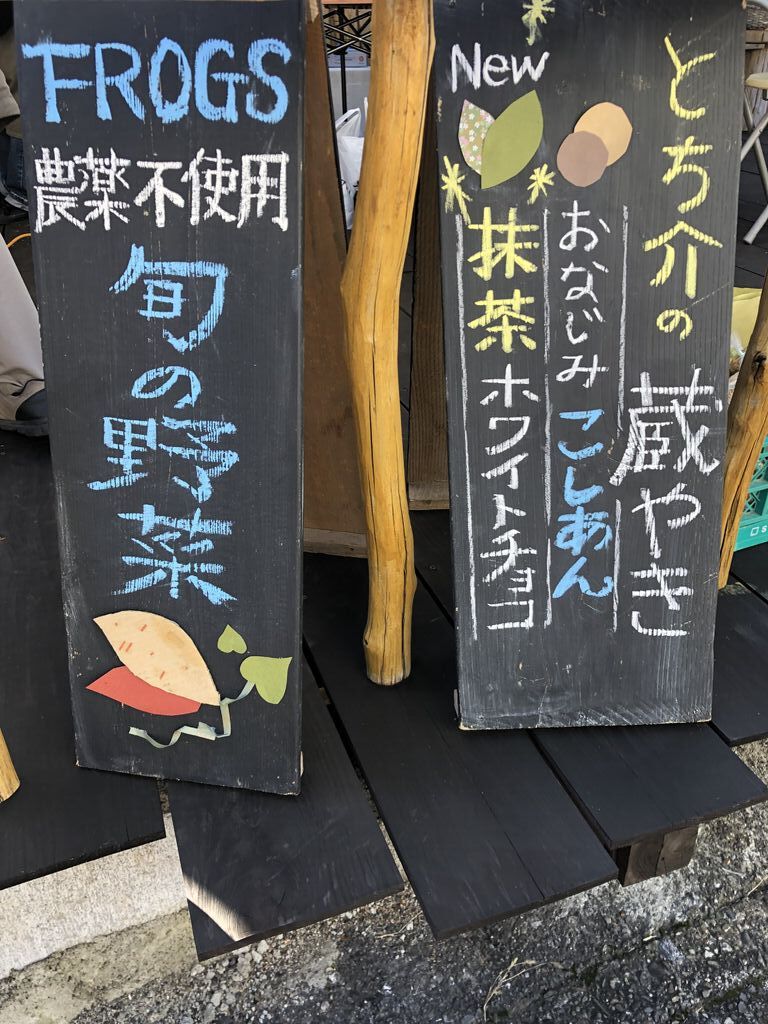 FROGS
農薬不使用
旬の野菜
とち介の
蔵やき
おなじみ
こしあん
New
抹茶
ホワイトチョコ